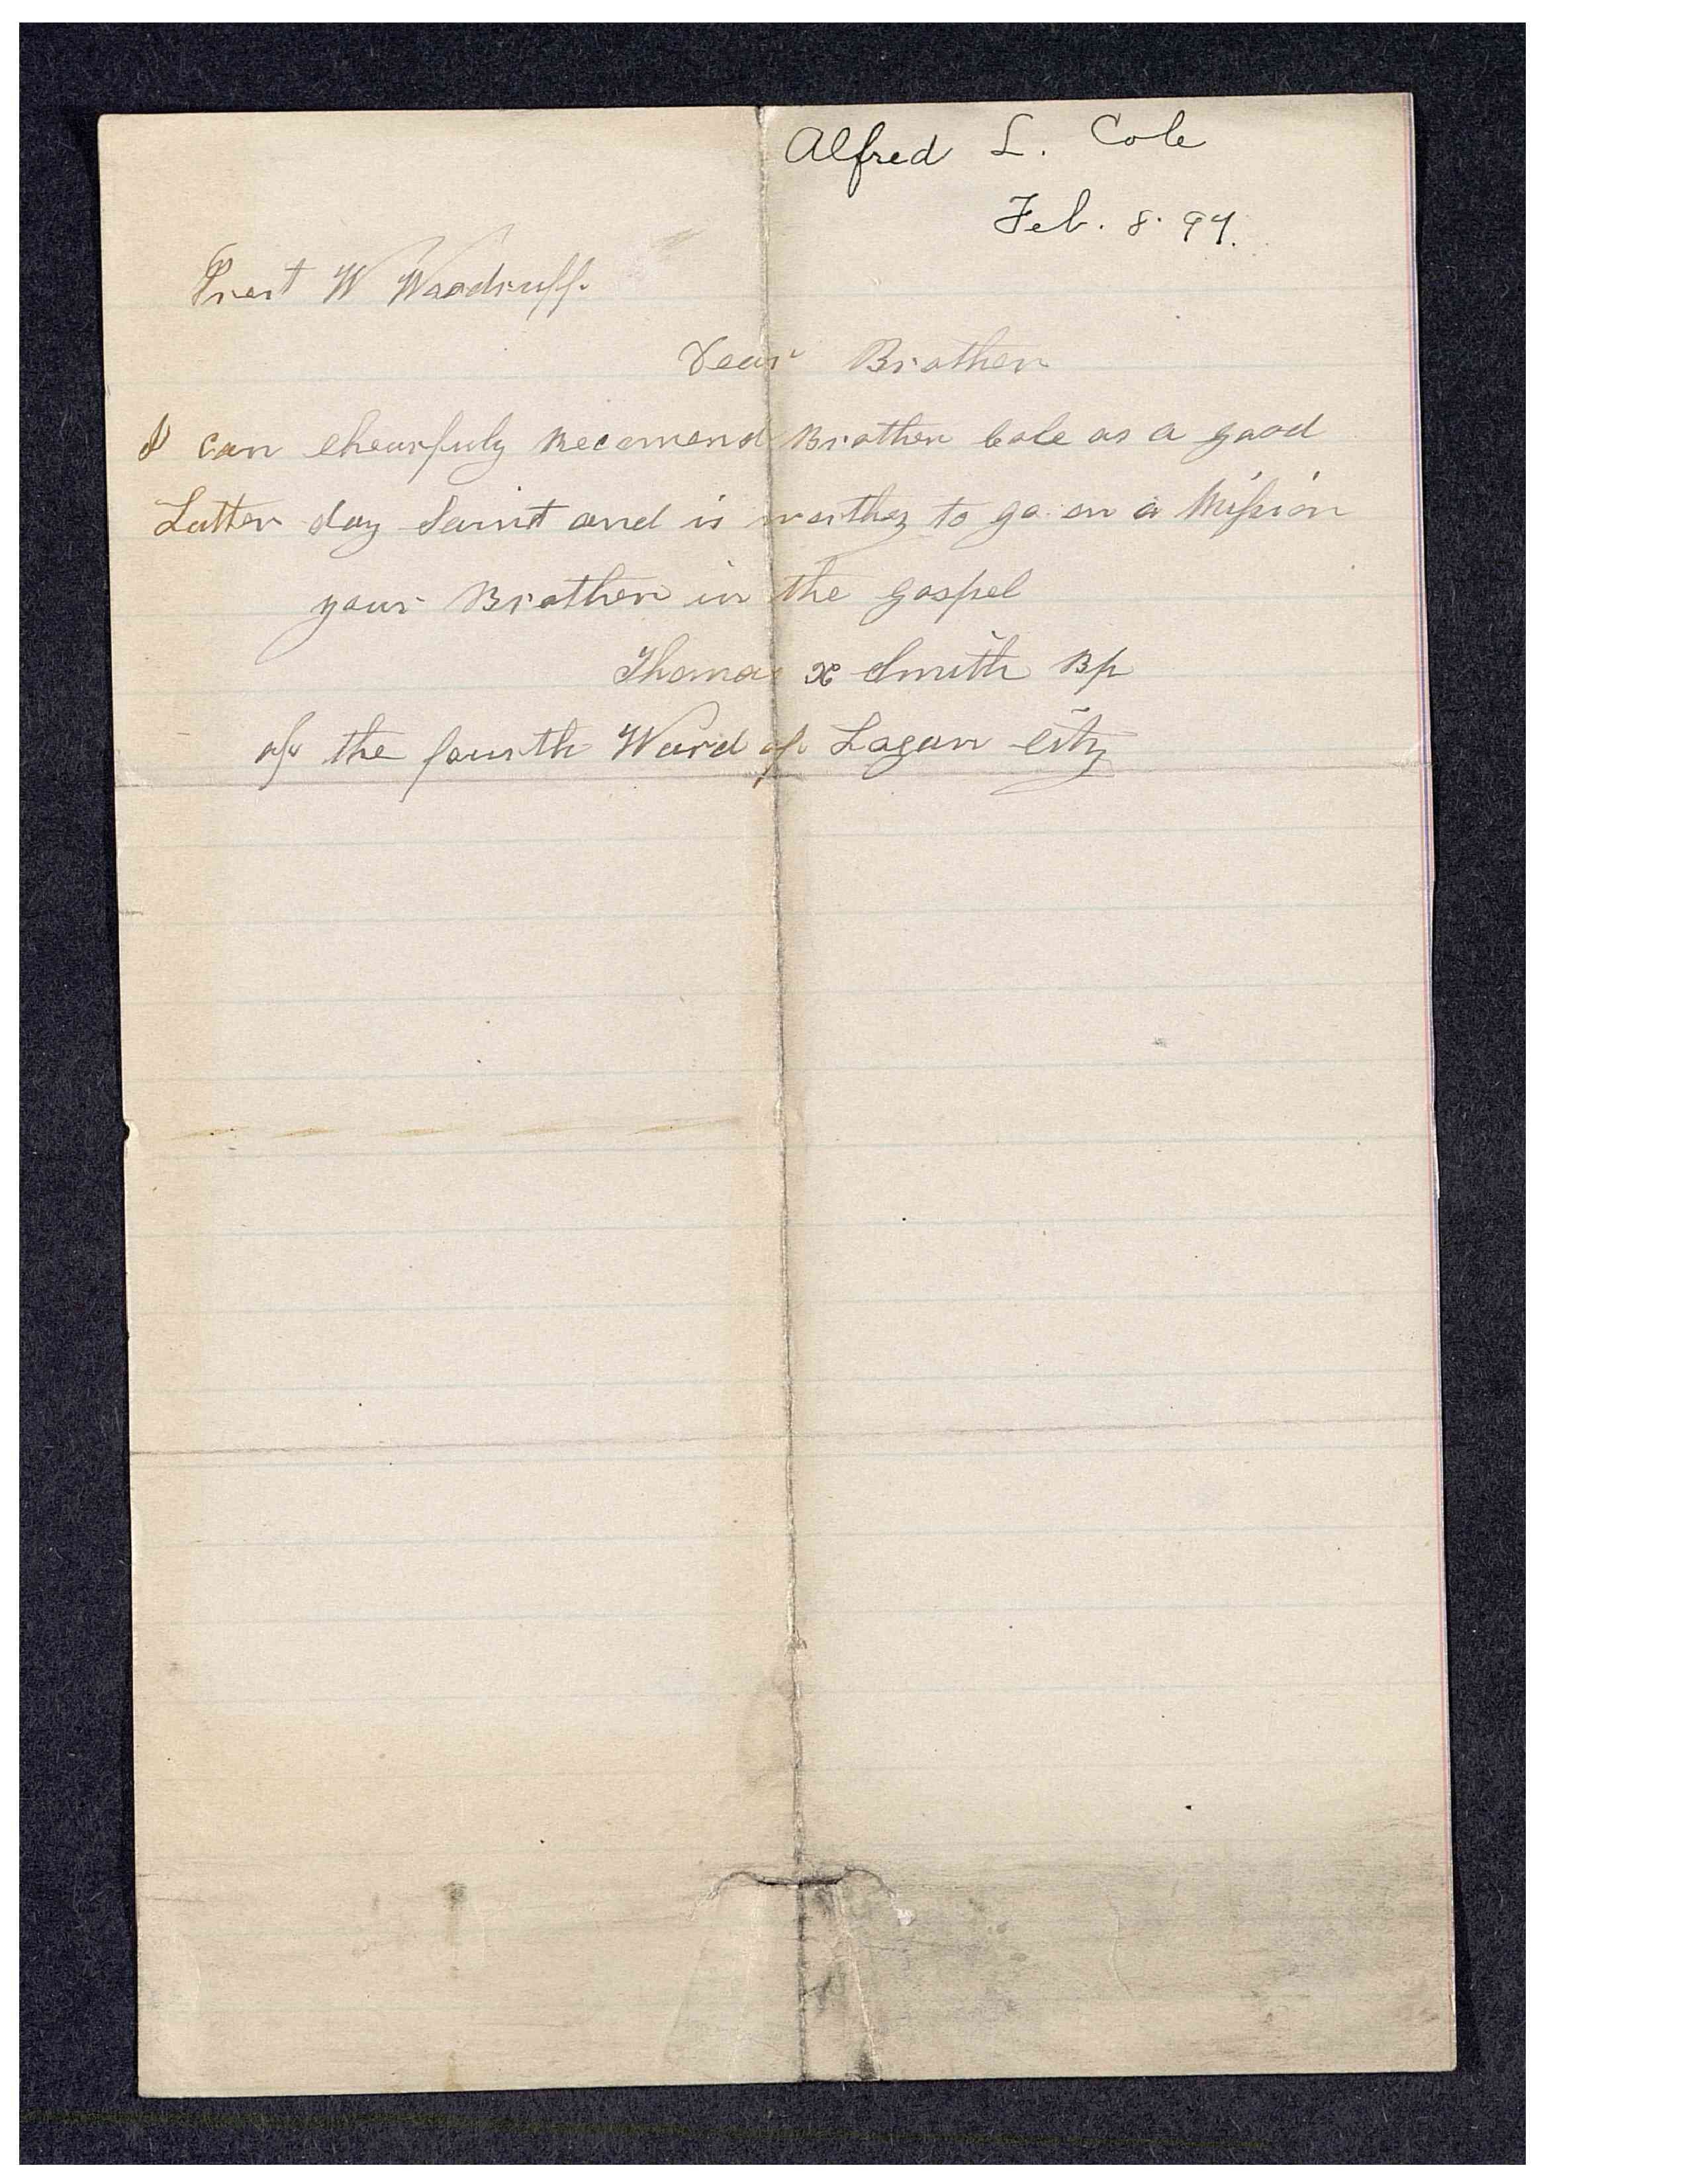 Alfred L. Cole
Feb. 8. 94.
Prest W Woodruff.
Dear Brother
I can chearfuly Recomend Brother Cole as a good
Latter day Saint and is worthy to go on a Mission
your Brother in the gospel
Thomas X Smith Bp
of the fourth Ward of Logan City